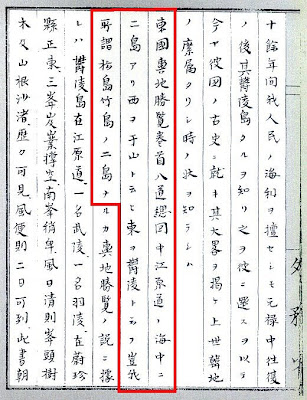 十餘年間我人民ノ海利ヲ擅セシモ元禄中往復
ノ後其鬱陵島タルヲ知リ之ヲ彼ニ還スヲ以テ
今ヤ彼因ノ古史ニ就キ其大畧ヲ掲ケ上世蕃地
ノ屬タリシ時ノ狀ヲ知ラシム
東國輿地勝覧巻首八道總図中江原道ノ海中ニ
二島アリ西ヲ于山トシ東ヲ鬱陵トス豈我
所謂松島竹島ノ二島ナルカ輿地勝覧ノ説ニ據
レハ鬱陵島在江原道一名武陵一名羽陵在蔚珍
縣正東三峯岌嶪撐空南峯稍卑風日清則峯頭樹
木及山根沙渚歴々可見風便則二日可到此書朝